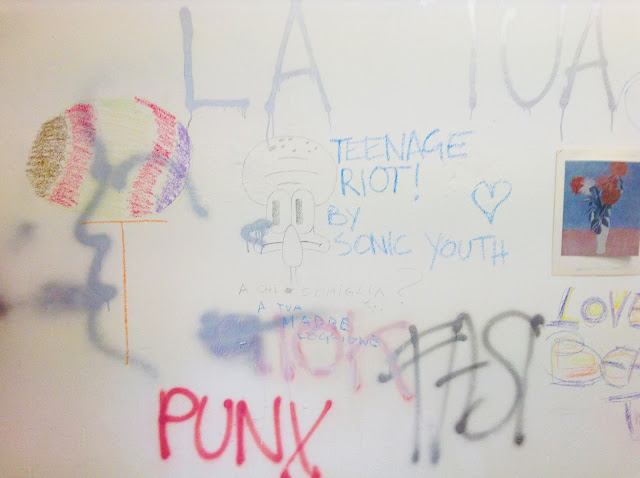 LA TUA
TEENAGE
RIOT!
BY
SONIC YOUTH
A CHI SOMIGLIA?
A TUA
MADRE
COGLIONE
LOVE
PUNX